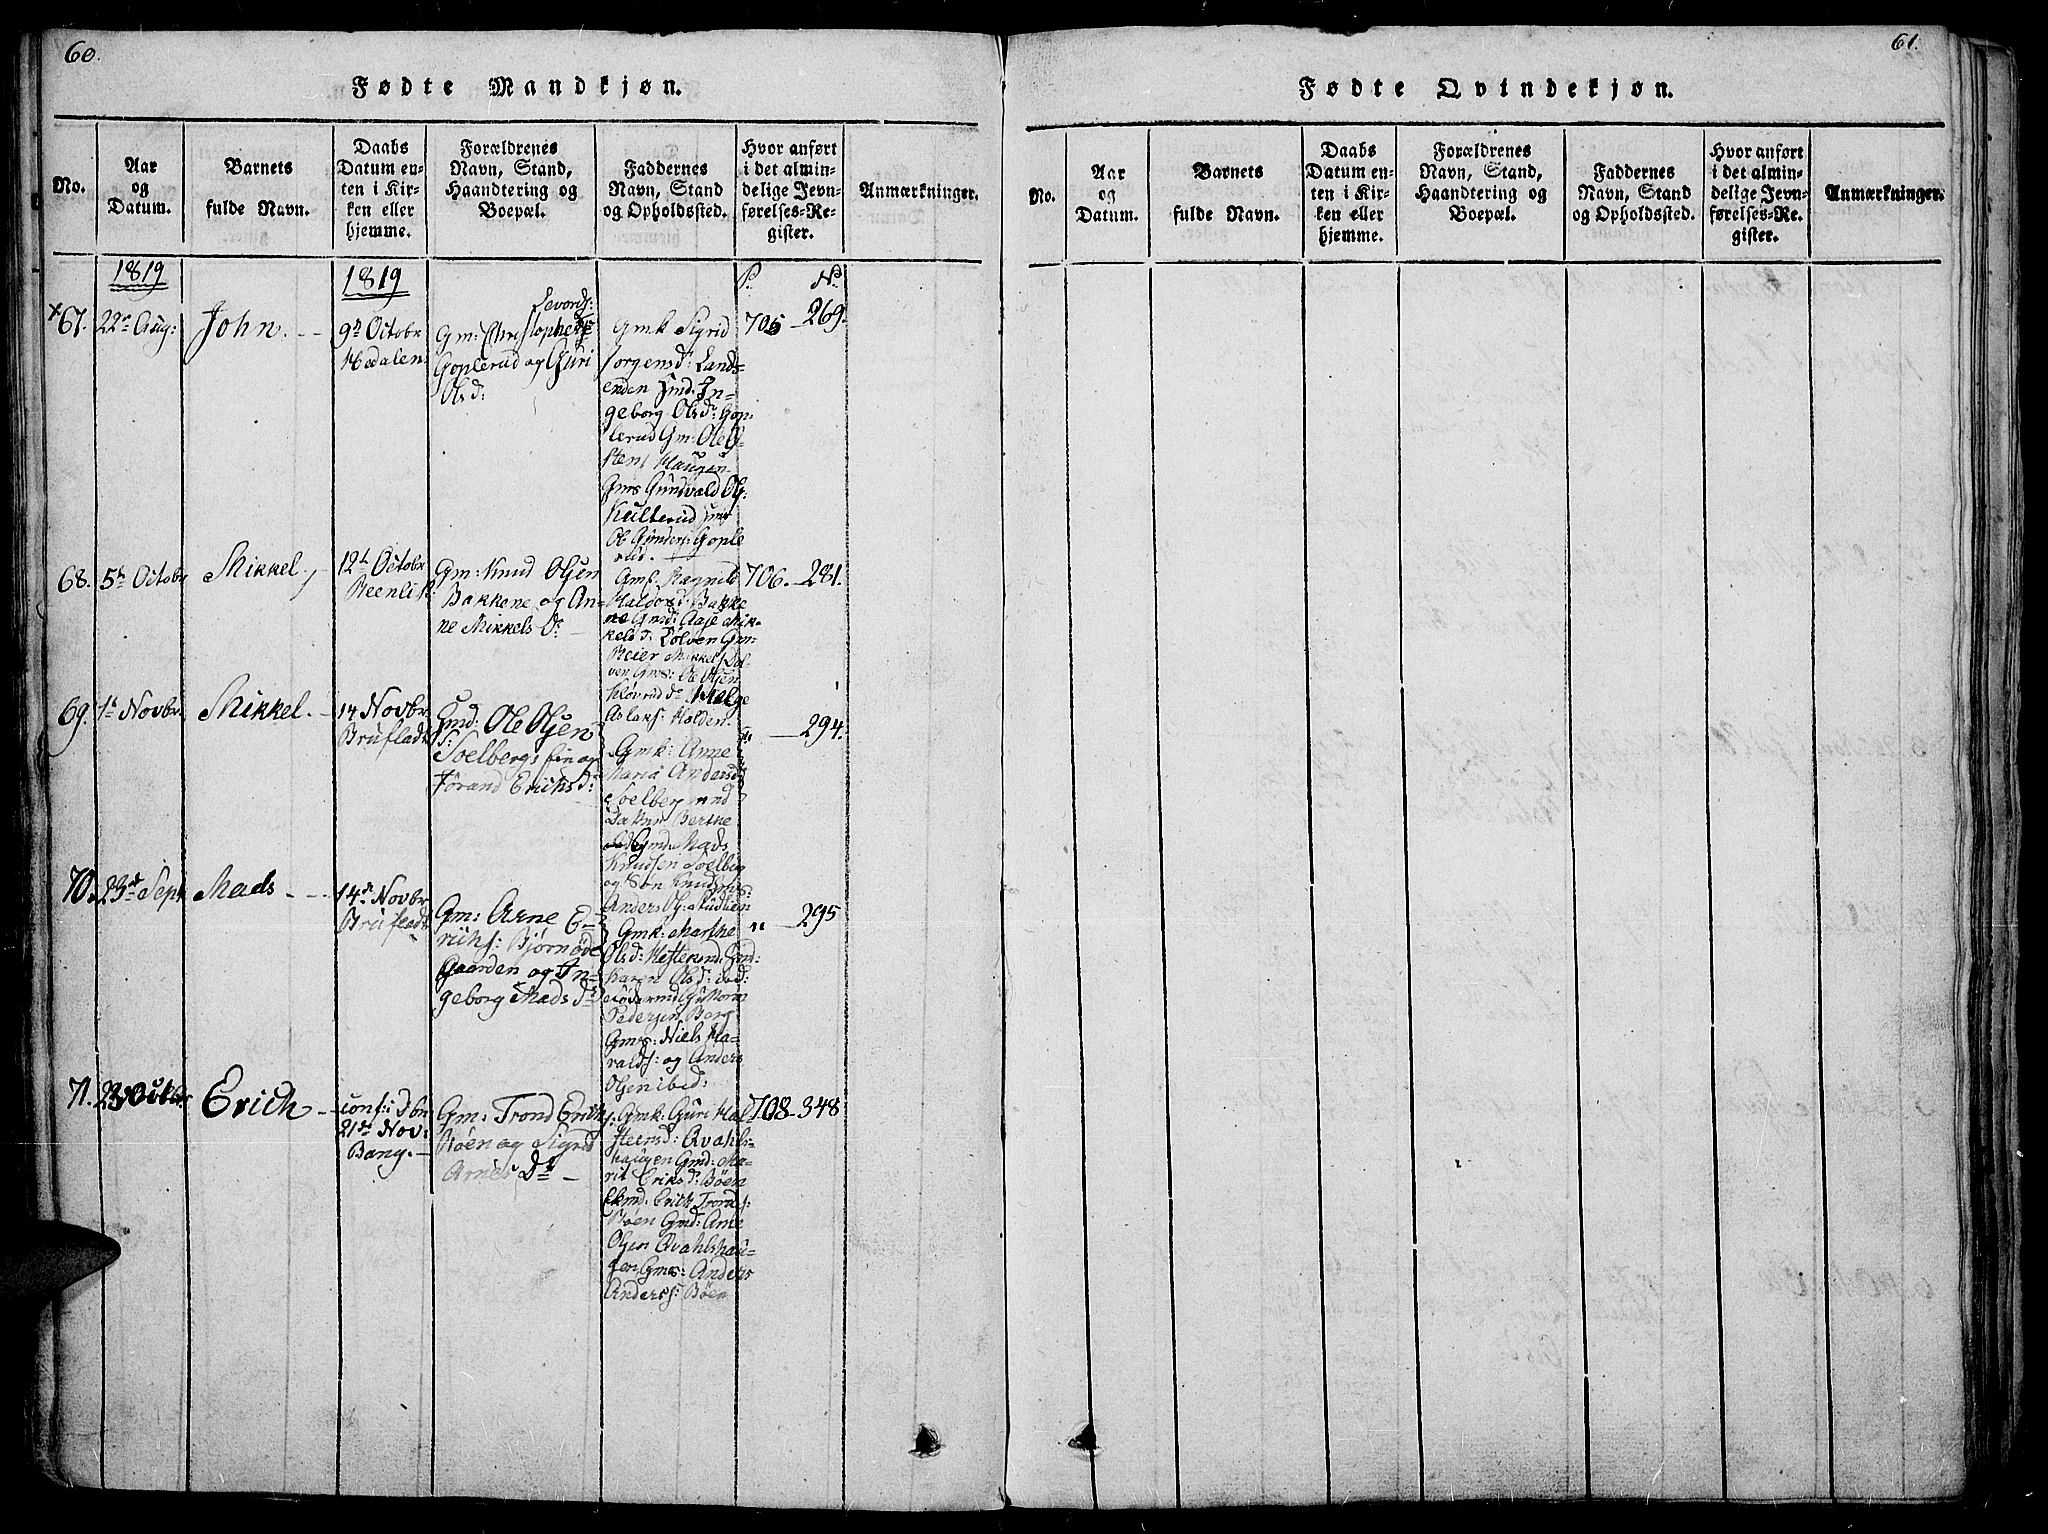 60.
Fødte Mandkjøn.
No.
Aar
og
Datum.
Barnets
fulde Navn.
Daabs
Datum en-
ten i Kir-
ken eller
hjemme.
Forældrenes
Navn, Stand,
Haandtering og
Boepæl.
Faddernes
Navn, Stand
og Opholdssted.
Hvor anført
i det almin-
delige Jevn-
førelses-Re-
gister.
Anmærkninger.
1819
1819
P. N.
67.
22de Aug:
John.
9de Octobr
Hædalen
Levords:
Gm: Christopher
Goplerud og Guri
Olsd:
Gmk Sigrid
Jorgensd: Lands-
enden Ymd: In-
geborg Olsd: Gop-
lerud Gm: Ole
Haugen
Gms Gundvald Ols:
Kulterud
Ol Gunders: Gople
rud.
705 269.
68.
5te Octobr
Mikkel
12te Octobr
Reenli K
Gm: Knud Olsen
Bakkene og An-
ne Mikkels Dr
Gmk Ragnild
Haldorsd: Bakke
ne Gmd: Aase Mik-
kelsd: Lølven Gm:
Reier Mikkels: Løl-
ven Gms: Ole Olsen
Kløvrud Helge
Aslaks: Holden.
706. 281.
69.
1te Novbr.
Mikkel.
14 Novbr
Brufladt
Ymd: Ole Olsen
Soelbergs
Jørand Eriks D:
Gmk: Anne
Maria Andersd
Soelberg
Berthe
Gmd: Mads
Knudsen Soelberg
og Søn Knud
Anders Ols:
" 294.
70.
23de Sept
Mads
14de Novbr
Brufladt
Gm: Arne E-
richs: Bjørnøde
Gaarden og In-
geborg Mads Dr
Gmk: Marthe
Olsd: Hesterud
Karen Olsd: ibid:
Pedersen Berg
Gms: Niels Ha-
ralds: og Anders
Olsen ibid:
" 295
71.
23 Octobr
Erich
conf: d
21de Nov:
Bang.
Gm: Trond Erich
Bøen og Sigrid
Arnes Dr
Gmk: Guri Hal-
steensd: Qvahls-
haugen Gmd: Ma-
rit Eriksd: Bøen
Erich Tronds:
Bøen Gmd: Arne
Olsen Qvahlshau-
gen Gms: Anders
Anderss: Bøen
708 348
61.
Fødte Qvindekjøn.
No.
Aar
og
Datum.
Barnets
fulde Navn.
Daabs
Datum en-
ten i Kir-
ken eller
hjemme.
Forældrenes
Navn, Stand,
Haandtering og
Boepæl.
Faddernes
Navn, Stand
og Opholdssted.
Hvor anført
i det almin-
delige Jevn-
førelses-Re-
gister.
Anmærkninger.